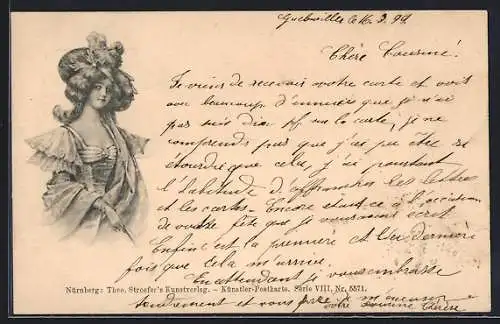 Guebwiller le 16. 3. 99
Chère Cousine!
Je viens de recevoir votre carte et vois
avec beaucoup d'ennuies que je n'ai
pas mis dix pf sur la carte, je ne
comprends pas que j'ai pu être si
étourdie que cela, j'ai pourtant
l'habitude d'affranchir les lettres
et les cartes. Encore était-ce à l'occasion
de votre fête que je vous avais écrit
Enfin c'est la première et la dernière
fois que cela m'arrive.
En attendant je vous embrasse
tendrement et vous prie de
votre cousine
Nürnberg: Theo. Stroefer's Kunstverlag. – Künstler-Postkarte. Serie VIII, Nr. 5571.